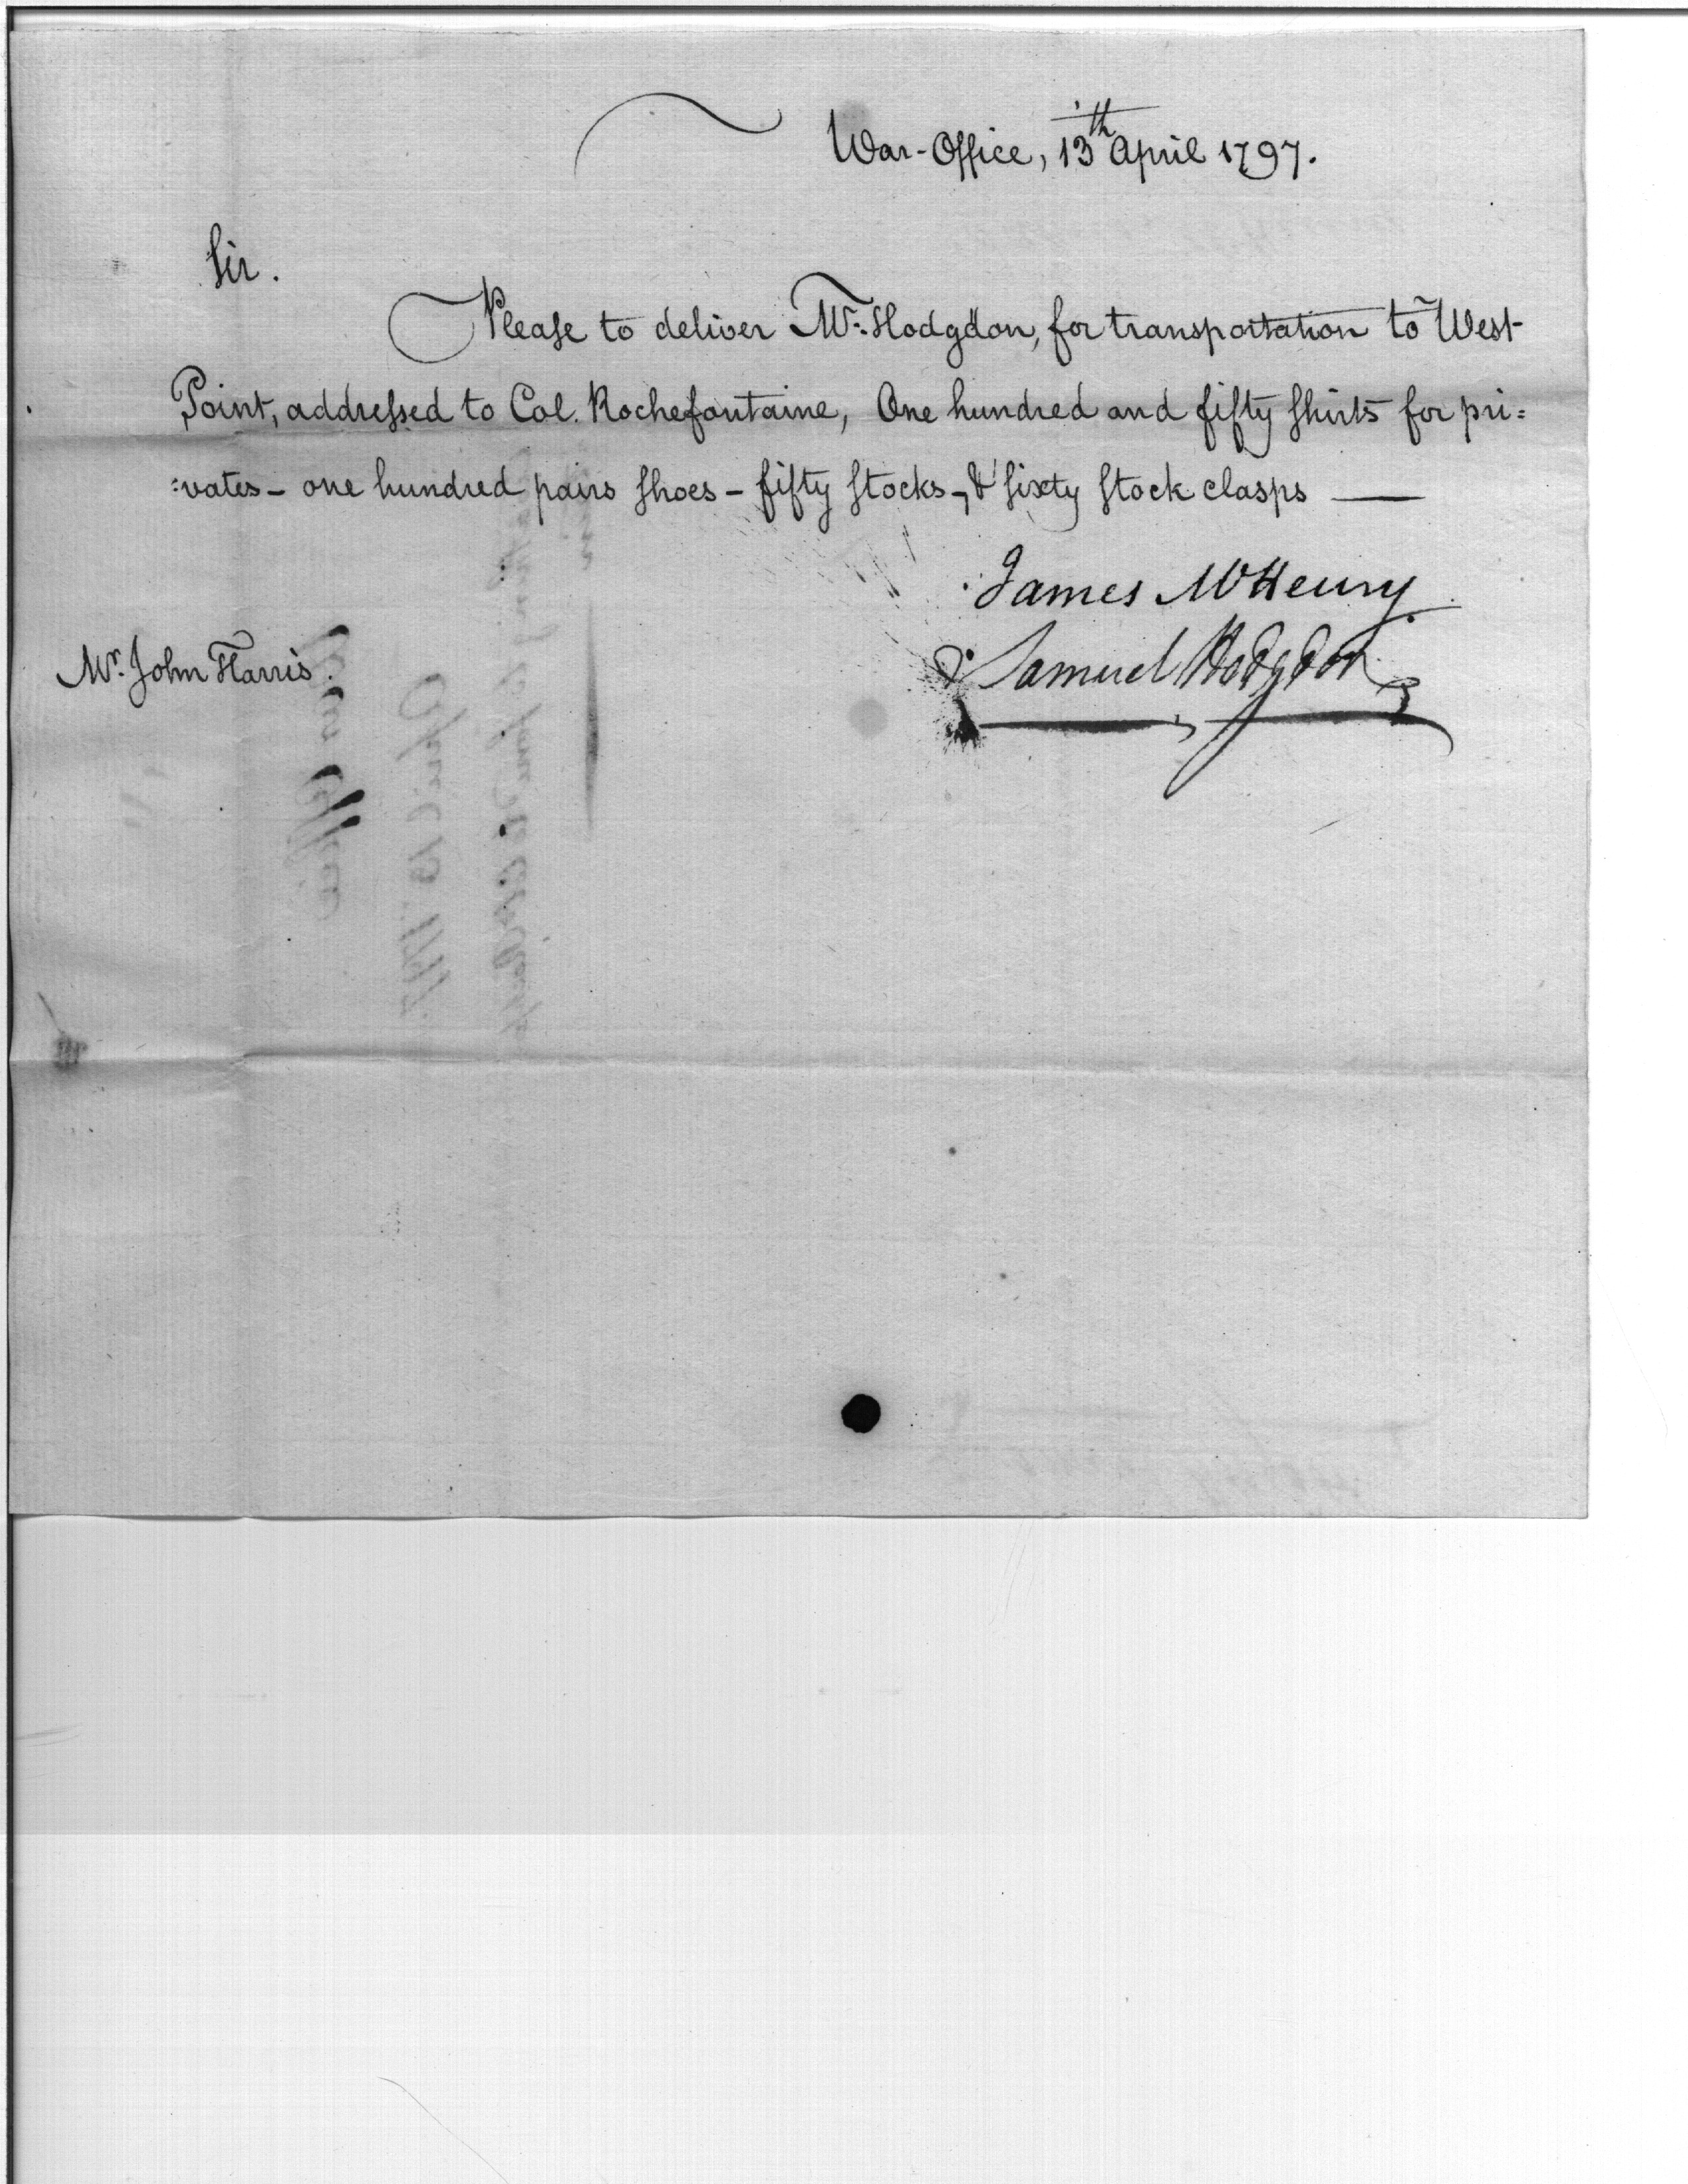 War-Office, 13th April 1797.
Sir.
Please to deliver Mr. Hodgdon, for transportation to West-
Point, addressed to Col. Rochefontaine, One hundred and fifty shirts for pri=
=vates - one hundred pairs shoes - fifty stocks, & sixty stock clasps —
James McHenry.
Samuel Hodgdon
Mr. John Harris.